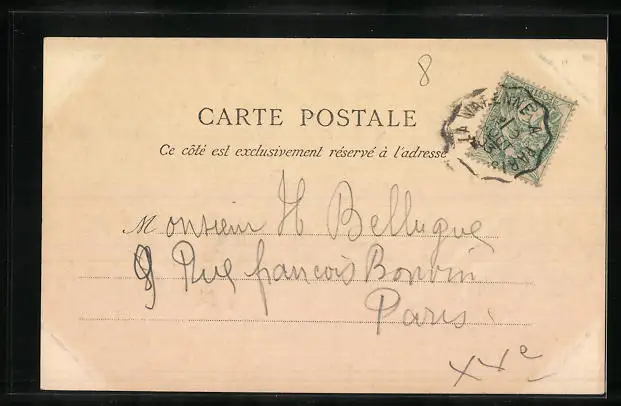 8
CARTE POSTALE
Ce côté est exclusivement réservé à l'adresse
LA VARENNE A PARIS
Monsieur H Bellugue
9 Rue françois Bonvin
Paris
XVe